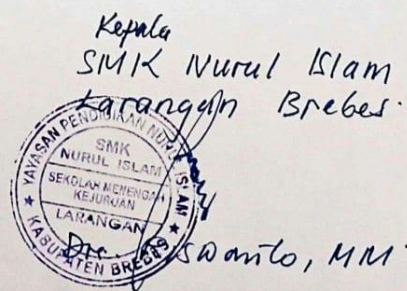 Kepala
SMK Nurul Islam
Larangan Brebes.
YAYASAN PENDIDIKAN NURUL ISLAM
SMK
NURUL ISLAM
SEKOLAH MENENGAH
KEJURUAN
LARANGAN
KABUPATEN BREBES
Drs. MM